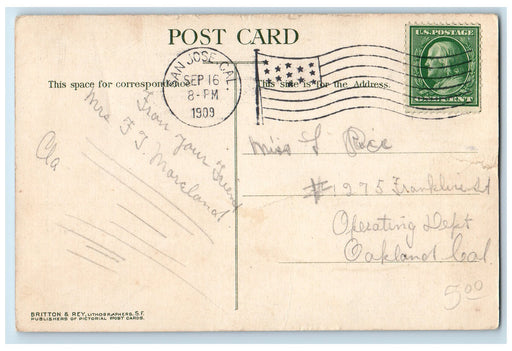 POST CARD
SAN JOSE, CAL.
SEP 16
8-PM
1909
U.S. POSTAGE
ONE CENT
This space for correspondence
This side is for the Address.
From your Friend
Mrs F J Moreland
Miss L Rice
#1275 Franklin St
Operating Dept
Oakland Cal
5.00
BRITTON & REY, LITHOGRAPHERS, S.F.
PUBLISHERS OF PICTORIAL POST CARDS.